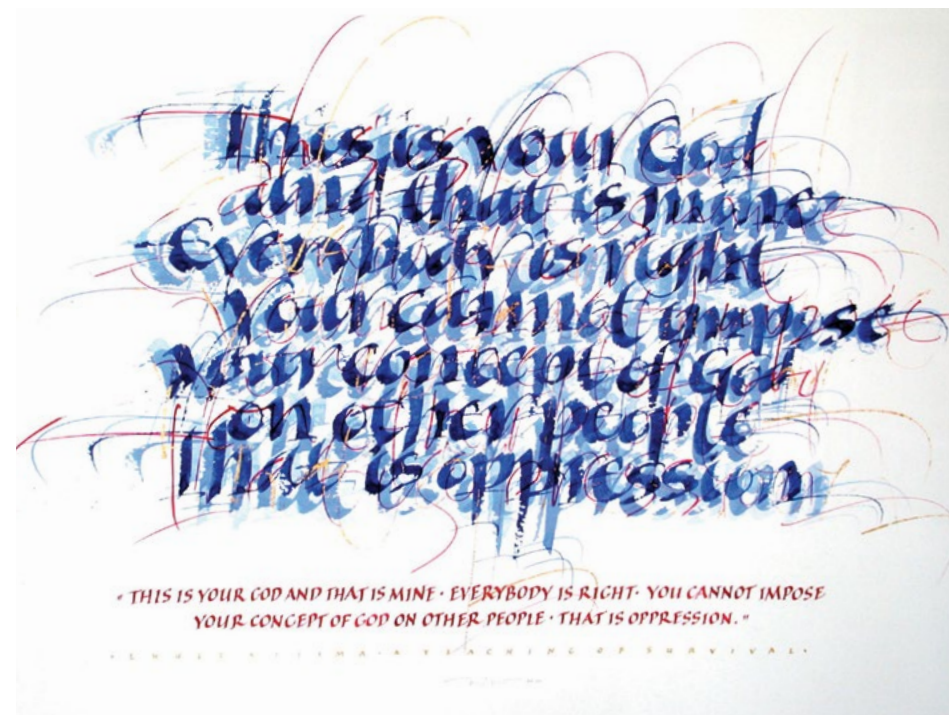 This is your God
and that is mine
Everybody is right
Your cannot impose
your concept of God
on other people
that is oppression
« THIS IS YOUR GOD AND THAT IS MINE · EVERYBODY IS RIGHT · YOU CANNOT IMPOSE
YOUR CONCEPT OF GOD ON OTHER PEOPLE · THAT IS OPPRESSION. »
A TEACHING OF SURVIVAL